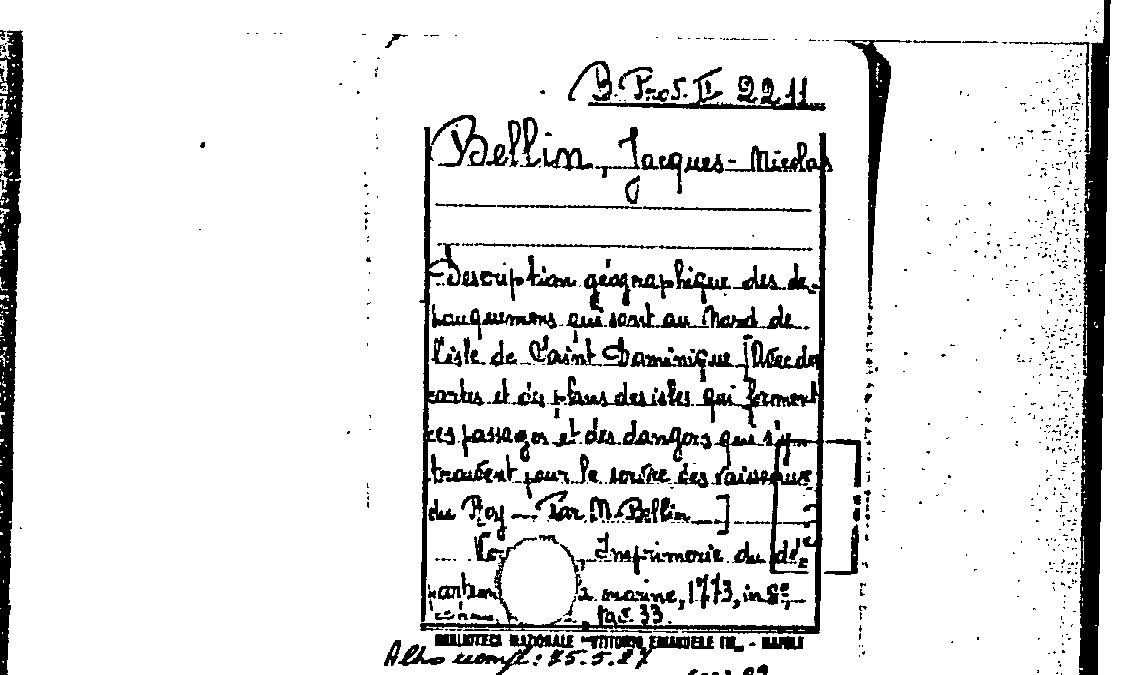 B. Prov. II 2211
Bellin, Jacques-Nicolas
Description géographique des de-
bouquemens qui sont au Nord de
l'isle de Saint Dominique [Avec des
cartes et des plans des isles qui forment
ces passages et des dangers qui s'y
trouvent pour le service des vaisseaux
du Roy - Par M. Bellin]
Imprimerie du dé-
marine, 1773, in 8º,
pag. 33.
BIBLIOTECA NAZIONALE "VITTORIO EMANUELE III" - NAPOLI
Altro compl: 25.5.27